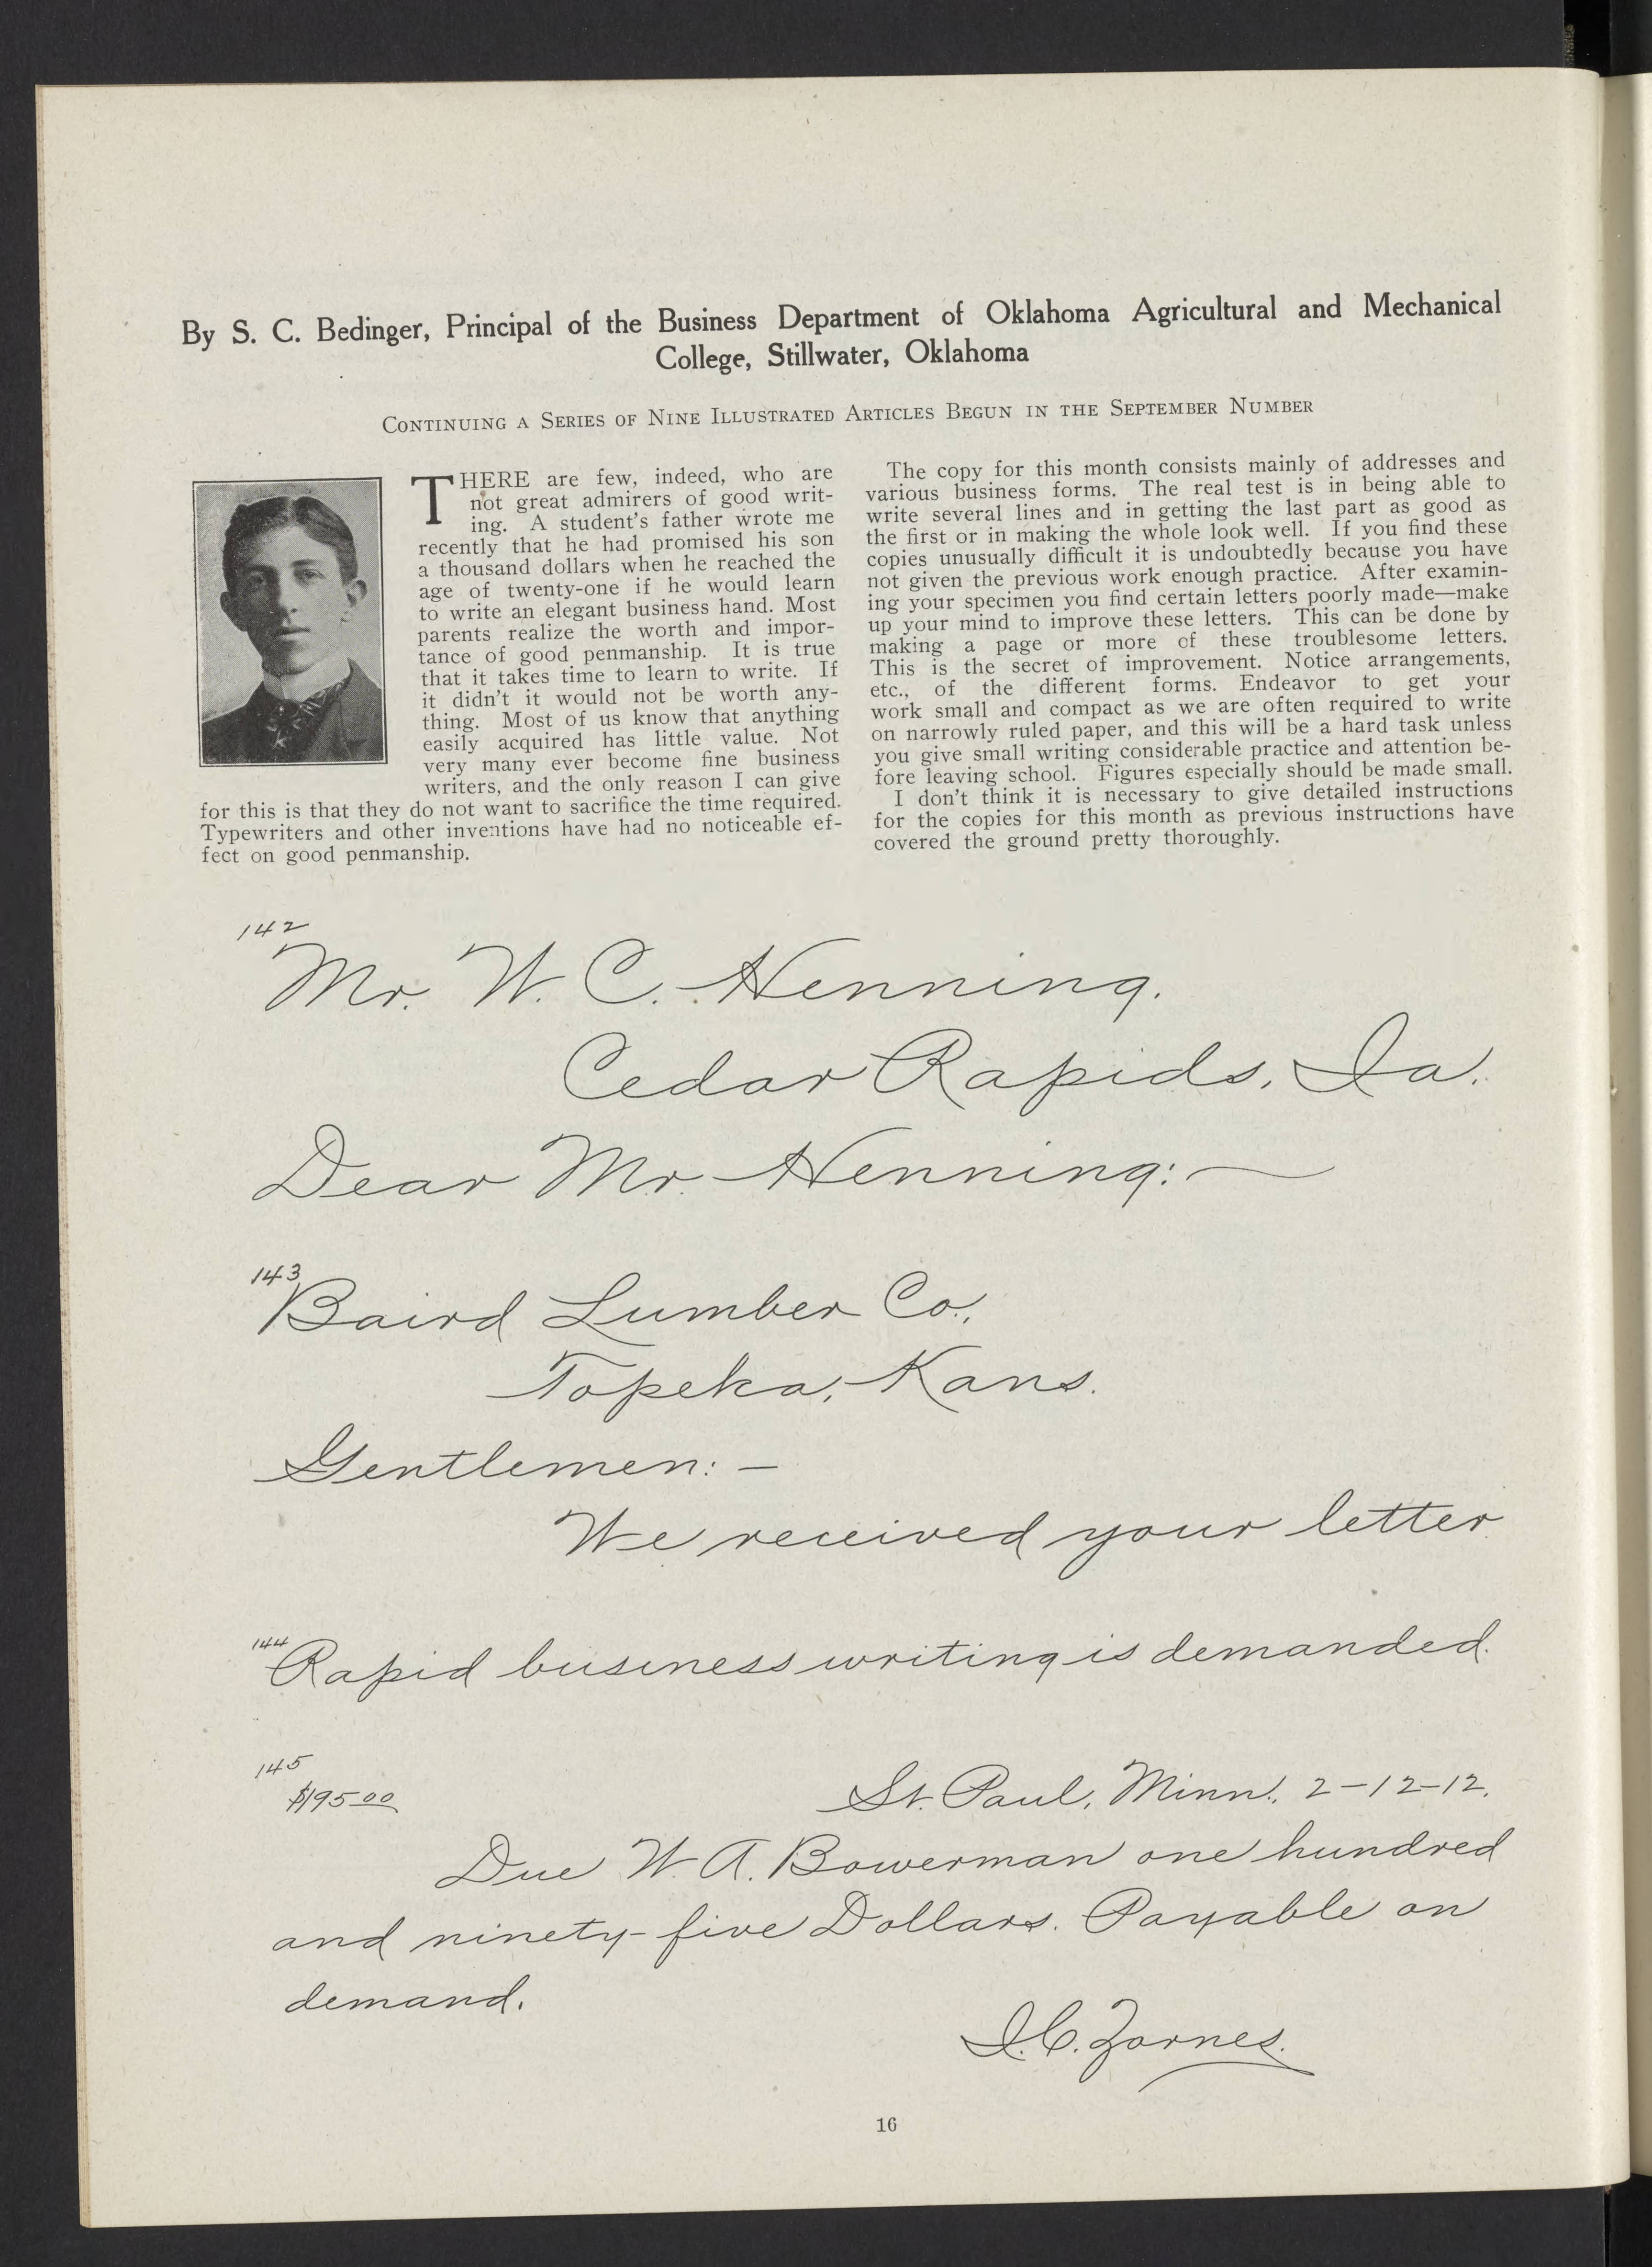 By S. C. Bedinger, Principal of the Business Department of Oklahoma Agricultural and Mechanical
College, Stillwater, Oklahoma
Continuing a Series of Nine Illustrated Articles Begun in the September Number
THERE are few, indeed, who are
not great admirers of good writ-
ing. A student's father wrote me
recently that he had promised his son
a thousand dollars when he reached the
age of twenty-one if he would learn
to write an elegant business hand. Most
parents realize the worth and impor-
tance of good penmanship. It is true
that it takes time to learn to write. If
it didn't it would not be worth any-
thing. Most of us know that anything
easily acquired has little value. Not
very many ever become fine business
writers, and the only reason I can give
for this is that they do not want to sacrifice the time required.
Typewriters and other inventions have had no noticeable ef-
fect on good penmanship.
The copy for this month consists mainly of addresses and
various business forms. The real test is in being able to
write several lines and in getting the last part as good as
the first or in making the whole look well. If you find these
copies unusually difficult it is undoubtedly because you have
not given the previous work enough practice. After examin-
ing your specimen you find certain letters poorly made—make
up your mind to improve these letters. This can be done by
making a page or more of these troublesome letters.
This is the secret of improvement. Notice arrangements,
etc., of the different forms. Endeavor to get your
work small and compact as we are often required to write
on narrowly ruled paper, and this will be a hard task unless
you give small writing considerable practice and attention be-
fore leaving school. Figures especially should be made small.
I don't think it is necessary to give detailed instructions
for the copies for this month as previous instructions have
covered the ground pretty thoroughly.
142
Mr. W. C. Henning.
Cedar Rapids, Ia.
Dear Mr. Henning:—
143
Baird Lumber Co.,
Topeka, Kans.
Gentlemen:—
We received your letter
144
Rapid business writing is demanded.
145
$195.00
St. Paul, Minn., 2-12-12.
Due W. A. Bowerman one hundred
and ninety-five Dollars. Payable on
demand.
I. C. Zarnes.
16